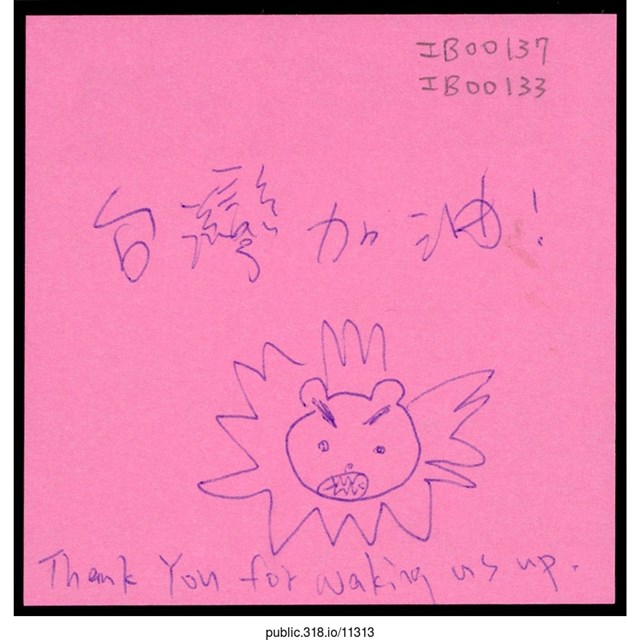 IB00137
IB00133
台灣加油!
Thank You for waking us up.
public.318.io/11313